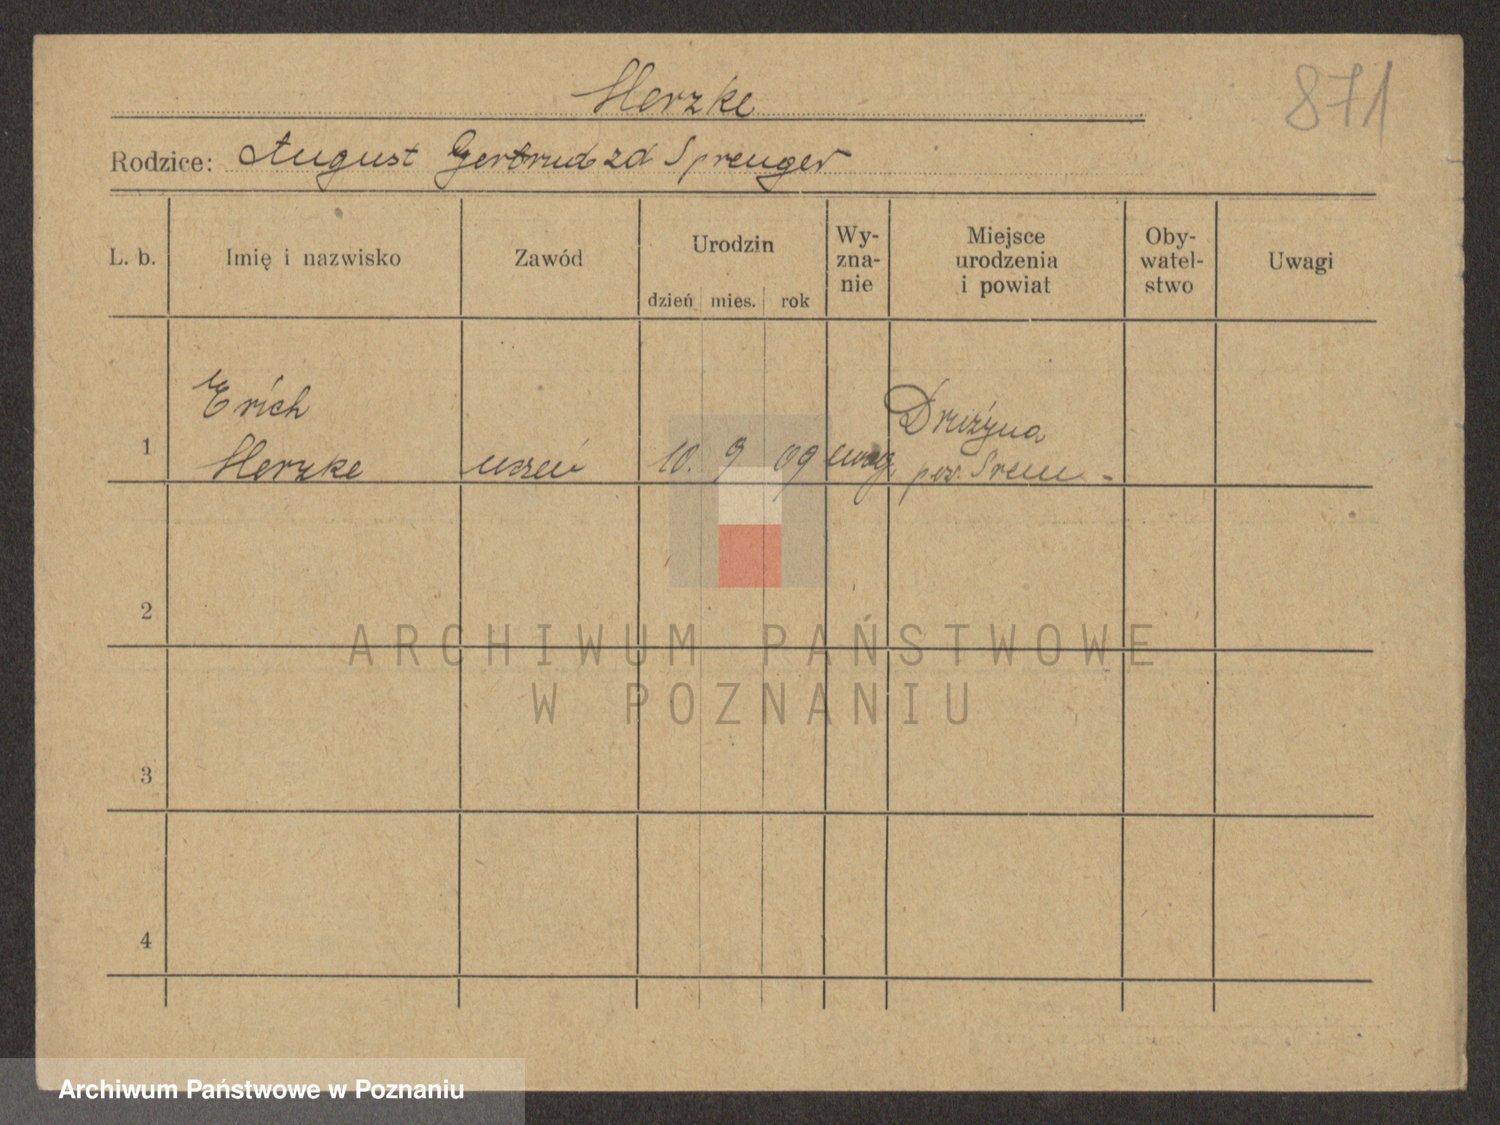 871
Herzke
Rodzice: August Gertruda zd Sprenger
L. b.
Imię i nazwisko
Zawód
Urodzin
dzień mies. rok
Wy-
zna-
nie
Miejsce
urodzenia
i powiat
Oby-
watel-
stwo
Uwagi
1
Erich
Herzke
uczeń
10. 9 09
ewag
Drużyna
pow. Srem -
2
3
4
ARCHIWUM PAŃSTWOWE
W POZNANIU
Archiwum Państwowe w Poznaniu